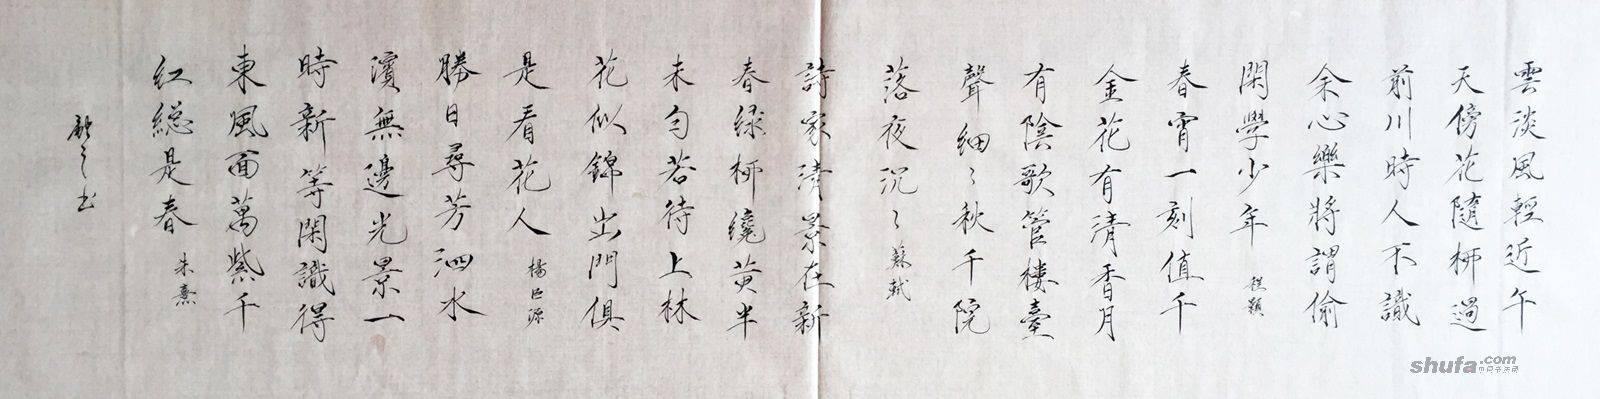 雲淡風輕近午
天傍花隨柳過
前川時人不識
余心樂將謂偷
閑學少年 程顥
春宵一刻值千
金花有清香月
有陰歌管樓臺
聲細〻秋千院
落夜沉〻 蘇軾
詩家清景在新
春綠柳纔黃半
未勻若待上林
花似錦出門俱
是看花人 楊巨源
勝日尋芳泗水
濱無邊光景一
時新等閑識得
東風面萬紫千
紅總是春 朱熹
之書
shufa.com